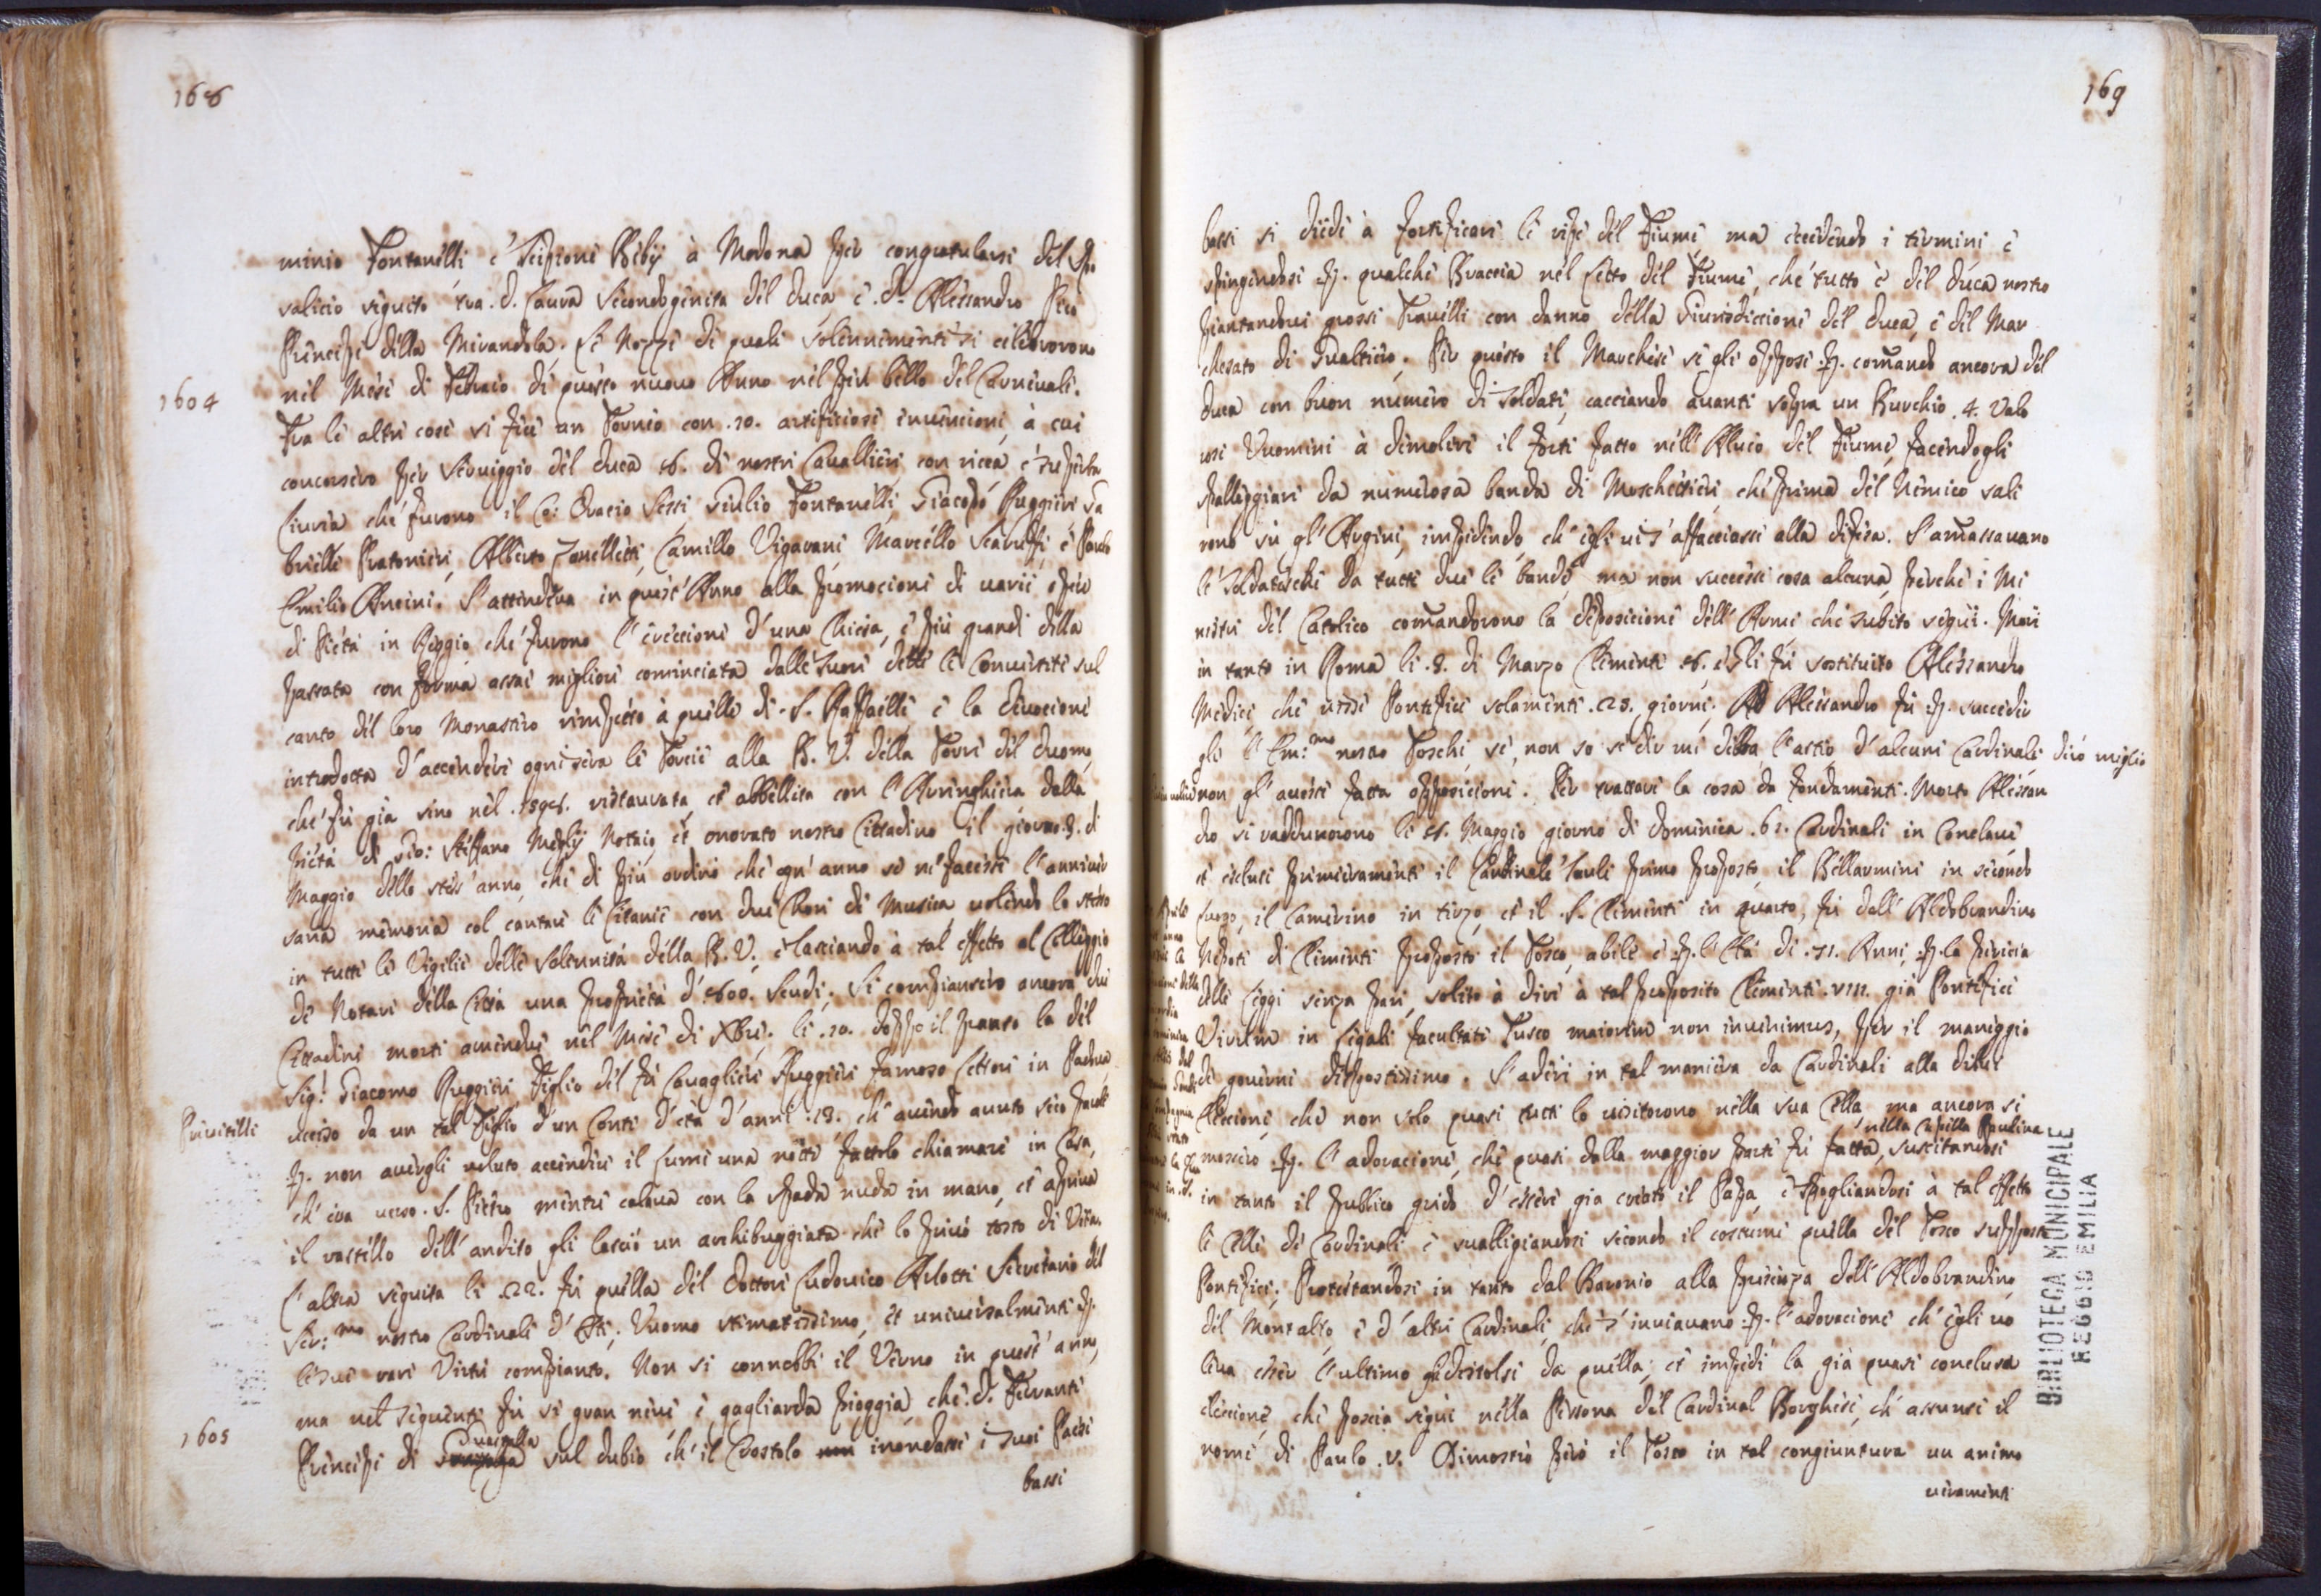 168
minio Fontanelli e Scipione Beby à Modona per congratularsi del Spo
salicio seguito tra D. Laura Secondogenita del Duca e D. Alessandro Pico
Principe della Mirandola. Le Nozze di quali solennemente si celebrorono
1604
nel Mese di Febraio di questo nuovo Anno nel più bello del Carnivale.
Fra le altre cose vi fece un Tornio con .10. artificiose invencioni, à cui
concorsero per Serviggio del Duca di nostri Cavallieri con ricca, e superba
Livrea che furono il Co: Oracio Sessi Giulio Fontanelli, Giacopo Ruggieri Ga
brielle Pratonieri, Alberto Zanelletti, Camillo Vigarani, Marcello Scaruffi, e Paulo
Emilio Ancini. S'attendeva in quest'Anno alla promocione di varii opere
di Pietà in Reggio, che furono l'ereccione d'una Chiesa, e più grande della
passata con forma assai migliore cominciata dalle Suore dette le Convertite sul
canto del loro Monastiro rimpeto à quille di S. Raffaelle e la devocione
introdotta d'accendere ogni sera le Torcie alla B. V. della Torre del Duomo,
che fù già sino nel ristaurata, et abbellita con l'Aringhiera dalla
pietà di Gio: Steffano Notaio, et onorato nostro Cittadino il giorno .3. di
Maggio dello stess'anno, che di più ordinò che ogn'anno se ne facesse l'anniver
saria memoria col cantare le Litanie con due Chori di Musica, volendo lo stesso
in tutte le Vigilie delle Solennità della B. V., e lasciando à tal effetto al Colleggio
de Notari della Città una proprietà d' Scudi. Si compiansero ancora due
Cittadini morti amendue nel Mese di Xbre. li .10. doppo il pranso la del
Sig.r Giacomo Ruggieri Figlio del fù Cavaglieri Ruggieri famoso Lettore in Padova
Privitelli
ucciso da un tal Figlio d'un Conte d'età d'anni .18. ch'avendo avuto seco parole
p. non avergli voluto accendere il lume una notte fattolo chiamare in Casa,
ch'era verso S. Pietro mentre calava con la spada nuda in mano, et apriva
il rastello dell'andito gli lasciò un archibuggiata che lo privò tosto di Vita.
L'altra seguita li .22. fù quella del Dottore Ludovico Arlotti Secretario del
Ser:mo nostro Cardinale d'Este; Vuomo stimatissimo, et universalmente p.
le sue rare Virtù compianto. Non si connobbe il Verno in quest'anno,
1605
ma nel seguente fù si gran neve e gagliarda pioggia, che D. Ferrante
Guastalla
Principe di sul dubio ch'il Crostolo non inondasse i suoi Paesi
bassi
169
bassi si diede à fortificare le ripe del Fiume, ma eccedendo i termini e
spingendosi p. qualche Braccia nel letto del Fiume, che tutto è del Duca nostro
piantandovi grossi Travelli con danno della Giurisdiccione del Duca, e del Mar
chesato di Gualtiero. Per questo il Marchese si gli oppose p. comando ancora del
Duca con buon numero di Soldati, cacciando avanti sopra un Burchio .4. Valo
rosi Vuomini à demolire il forte fatto nell'Alveo del Fiume, facendogli
spalleggiare da numerosa banda di Moschettieri, che prima del Nemico sali
rono sù gl'Argini, impedindo ch'egli vi s'affacciasse alla difesa. S'amassavano
le Soldatesche da tutte due le bande, ma non successe cosa alcuna, perche i Mi
nistri del Catolico comandorono la deposicione dell'Armi che subito seguì. Morì
in tanto in Roma li .3. di Marzo Clemente e gli fù sostituito Alessandro
Medici, che visse Pontefice solamente giorni. Ad Alessandro fù p. succeder
gli l'Em:mo nostro Toschi, se, non so se dir mi debba l'astio d'alcuni Cardinali dirò miglio
non gl'avesse fatta opposicione. Per trattare la cosa da fondamenti. Morto Alessan
dro si raddunorono li Maggio giorno di Dominica .61. Cardinali in Conclave
et esclusi primieramente il Cardinale Sauli primo proposto, il Bellarmini in secondo
luogo, il Camerino in tirzo, et il S. Clemente in quarto, fù dall'Aldobrandino
Nepote di Clemente proposto il Tosco, abile e p. l'Età di .71. Anni, p. la pericia
delle Leggi senza pari, solito à dire à tal proposito Clemente VIII. già Pontefice
Virum in Legali facultate Tusco maiorem non invenimus, per il maneggio
di governi dispostissimo. S'aderì in tal maniera da Cardinali alla di lui
Eleccione, che non solo quasi tutti lo visitorono nella sua Cella, ma ancora si
nella Capella Paulina
mossero p. l'adoracione, che quasi dalla maggior parte fù fatta, suscitandosi
in tanto il publico grido d'essere gia creato il Papa, e spogliandosi à tal effetto
le Celle de Cardinali e svalligiandosi secondo il costume quella del Tosco supposto
Pontefice. Protestandosi in tanto dal Baronio alla presenza dell'Aldobrandino,
del Montalto, e d'altri Cardinali, che s'inviavano p. l'adoracione ch'egli vo
leva esser l'ultimo distolsi da quella, et impedì la già quasi conclusa
eleccione, che poscia seguì nella Persona del Cardinal Borghese, ch'assunse il
nome di Paulo .V. Dimostrò però il Tosco in tal congiuntura un animo
veramente
BIBLIOTECA MUNICIPALE
REGGIO EMILIA